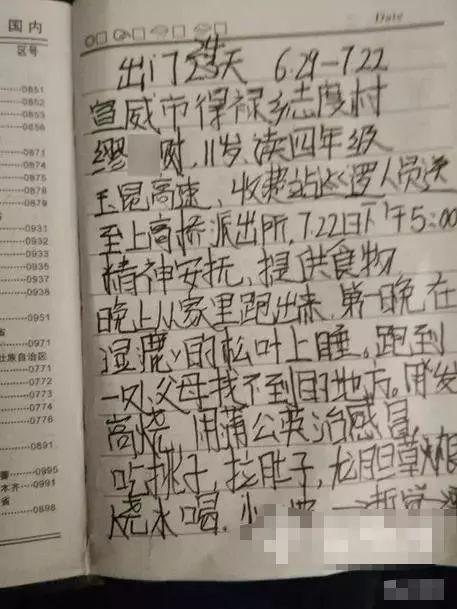 国内
区号
0851
0851
0852
0853
0856
0871
0874
0875
0876
0878
0879
0931
0932
0933
0935
0937
0938
0951
省
0971
壮族自治区
0771
0772
0773
0774
0776
0891
0995
木齐 0991
省
0898
Date
出门23天 6.29-7.22
宣威市得禄乡志度村
缪 财,11岁,读四年级
玉昆高速,收费站巡逻人员送
至上高桥派出所,7.22日下午5:00
精神安抚,提供食物
晚上从家里跑出来,第一晚在
湿鹿的松叶上睡。跑到
一处父母找不到的地方。用发
高烧,用蒲公英治感冒,
吃挑子,拉肚子,龙胆草根
烧水喝.